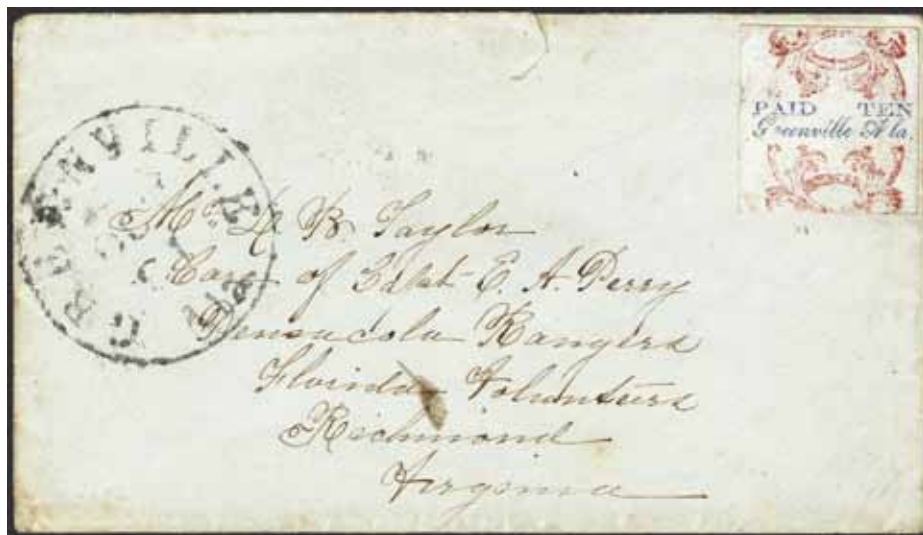 PAID TEN
Greenville Ala.
GREENVILLE
Ala
Mr. B. Taylor
Care of Capt E. A. Perry
Pensacola Rangers
Florida Volunteers
Richmond
Virginia